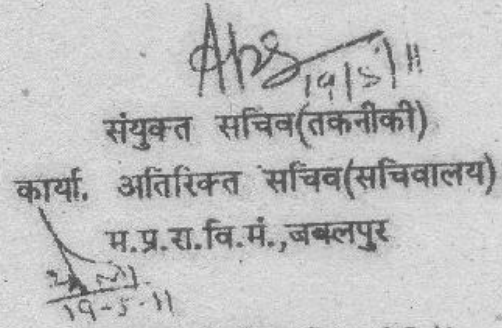 19/5/11
संयुक्त सचिव(तकनीकी)
कार्या. अतिरिक्त सचिव(सचिवालय)
म.प्र.रा.वि.मं.,जबलपुर
19-5-11